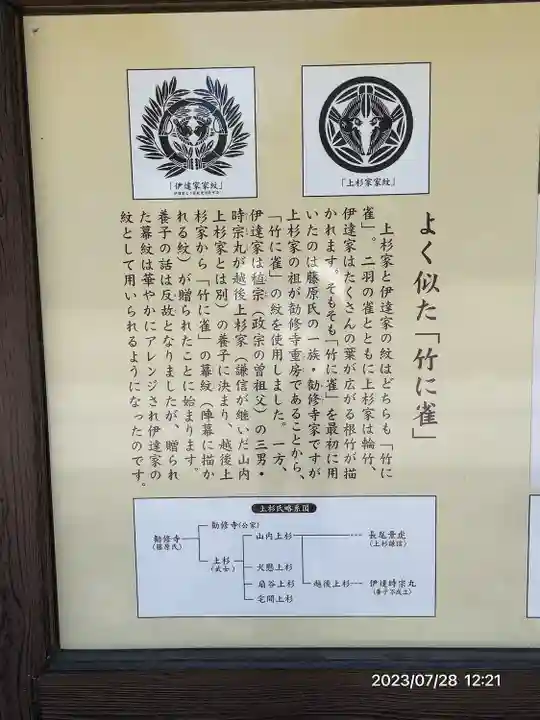 よく似た「竹に雀」
上杉家と伊達家の紋はどちらも「竹に
雀」。二羽の雀とともに上杉家は輪竹、
伊達家はたくさんの葉が広がる根竹が描
かれます。そもそも「竹に雀」を最初に用
いたのは藤原氏の一族・勧修寺家ですが
上杉家の祖が勧修寺重房であることから、
「竹に雀」の紋を使用しました。一方、
伊達家は稙宗(政宗の曽祖父)の三男・
時宗丸が越後上杉家(謙信が継いだ山内
上杉家とは別)の養子に決まり、越後上
杉家から「竹に雀」の幕紋(陣幕に描か
れる紋)が贈られたことに始まります。
養子の話は反故となりましたが、贈られ
た幕紋は華やかにアレンジされ伊達家の
紋として用いられるようになったのです。
「伊達家家紋」
「上杉家家紋」
上杉氏略系図
勧修寺
(藤原氏)
勧修寺(公家)
上杉
(武士)
山内上杉
犬懸上杉
扇谷上杉
宅間上杉
越後上杉
長尾景虎
(上杉謙信)
伊達時宗丸
(養子不成立)
2023/07/28 12:21